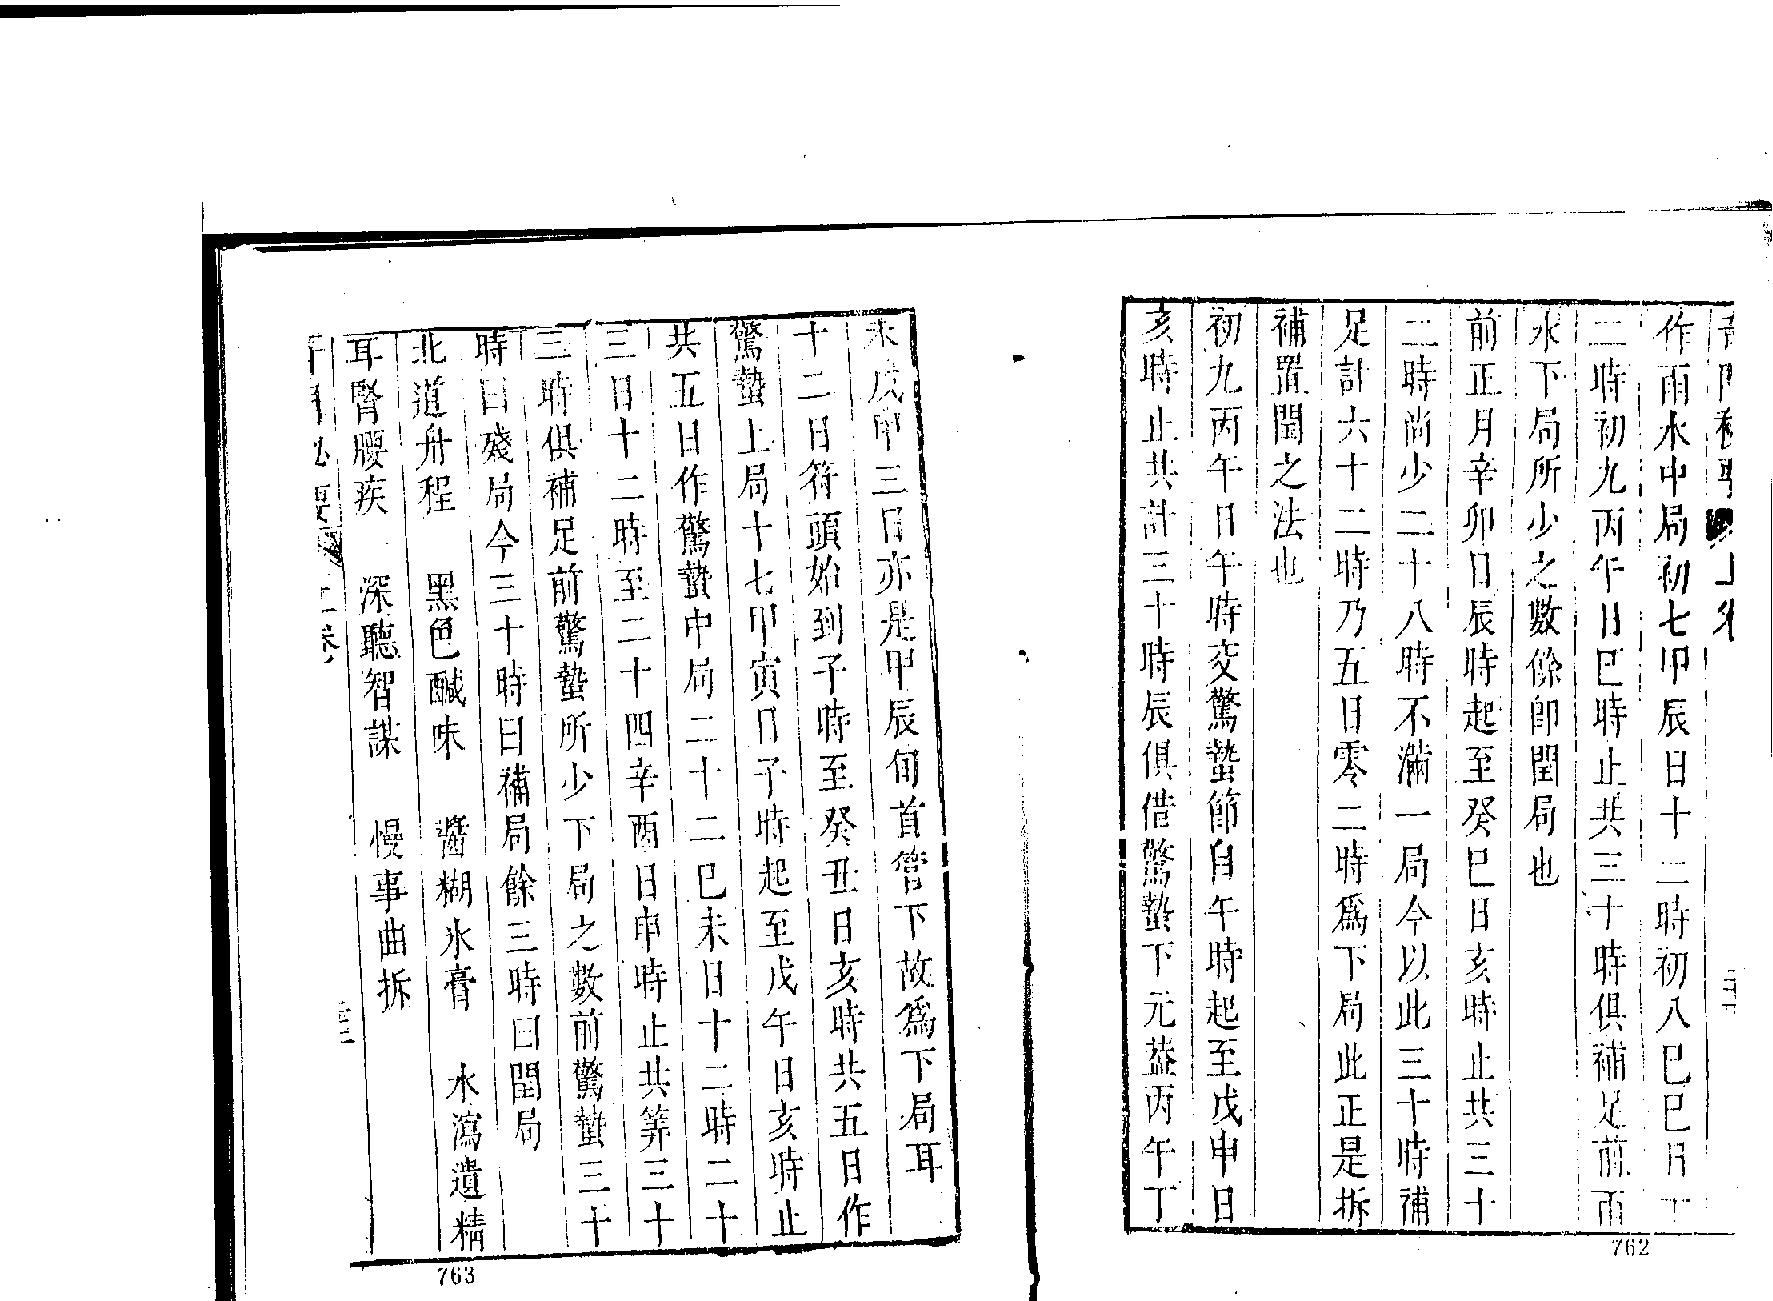 作雨水中局初七甲辰日十二時初八巳巳日十
二時初九丙午日巳時止共三十時俱補足前雨
水下局所少之數餘卽閏局也
前正月辛卯日辰時起至癸巳日亥時止共三十
二時尚少二十八時不滿一局今以此三十時補
足計六十二時乃五日零二時爲下局此正是拆
補置閏之法也
初九丙午日午時交驚蟄節自午時起至戊申日
亥時止共計三十時辰俱借驚蟄下元葢丙午丁
未戊申三日亦是甲辰旬首管下故爲下局耳
十二日符頭始到子時至癸丑日亥時共五日作
驚蟄上局十七甲寅日子時起至戊午日亥時止
共五日作驚蟄中局二十二巳未日十二時二十
三日十二時至二十四辛酉日申時止共筭三十
三時俱補足前驚蟄所少下局之數前驚蟄三十
時曰殘局今三十時曰補局餘三時曰閏局
北道舟程 黑色醎味 醬糊水膏 水瀉遺精
耳腎腰疾 深聽智謀 慢事曲拆
上卷
763
762